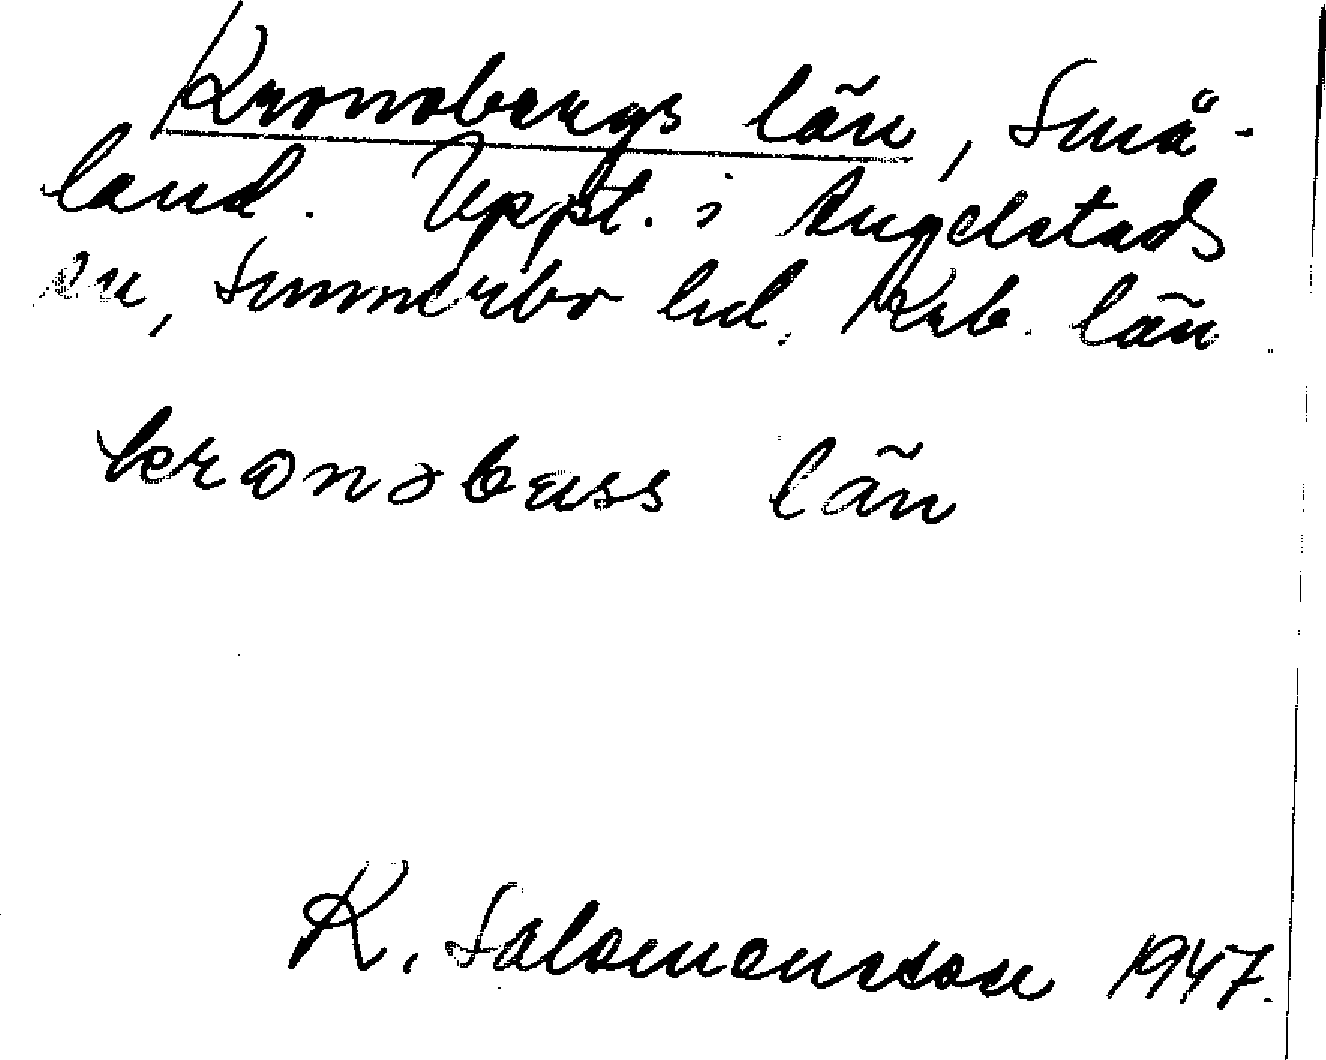 Kronobergs län, Små-
land. Uppt. i Angelstads
sn, Sunnerbo hd. Krb. län.
län
K. Salomonsson 1947.